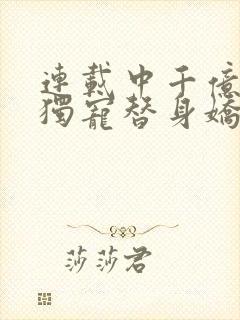 連載中千億
獨寵替身嬌
莎莎君